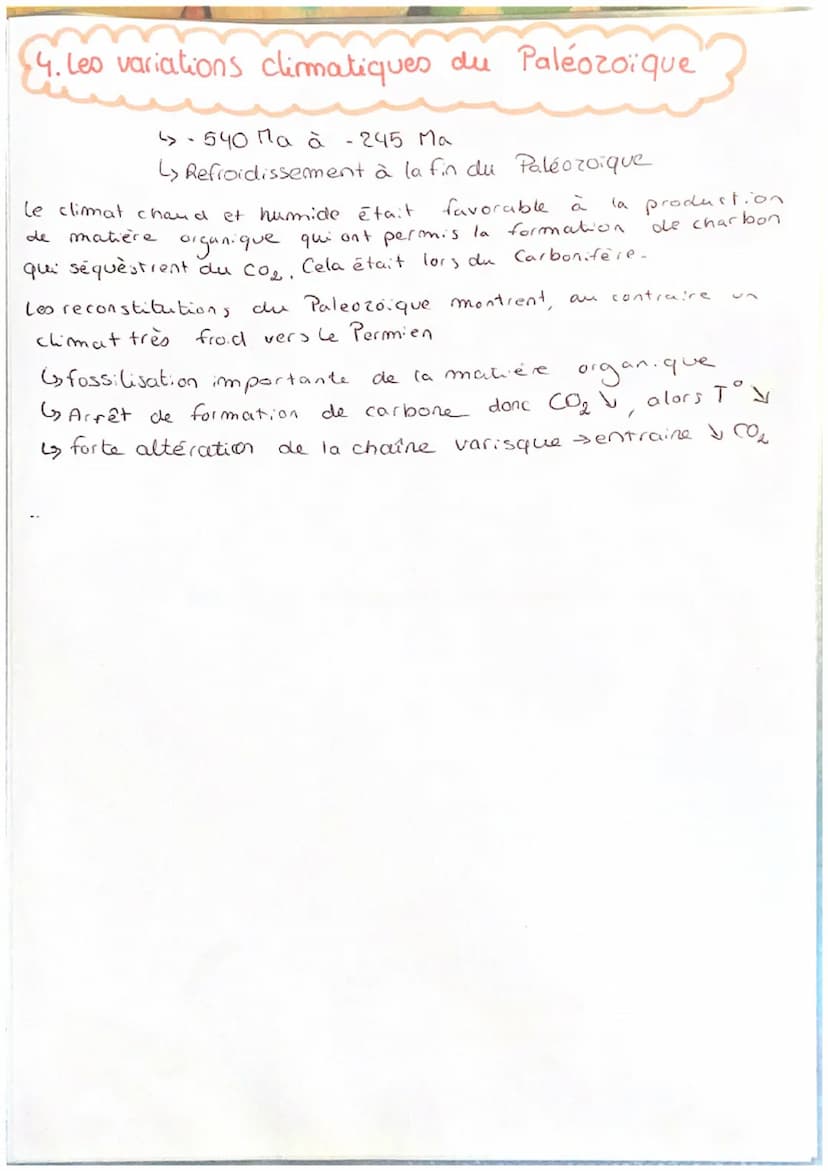 4. Les variations climatiques du Paléozoïque
↳ - 540 Ma à - 245 Ma
↳ Refroidissement à la fin du Paléozoïque
Le climat chaud et humide était favorable à la production
de matière organique qui ont permis la formation de charbon
qui séquèstrent du CO₂. Cela était lors du Carbonifère.
Les reconstitutions du Paleozoïque montrent, au contraire un
climat très froid vers le Permien
↳ fossilisation importante de la matière organique
↳ Arrêt de formation de carbone donc CO₂ ↘, alors T° ↘
↳ forte altération de la chaîne varisque → entraine ↘ CO₂